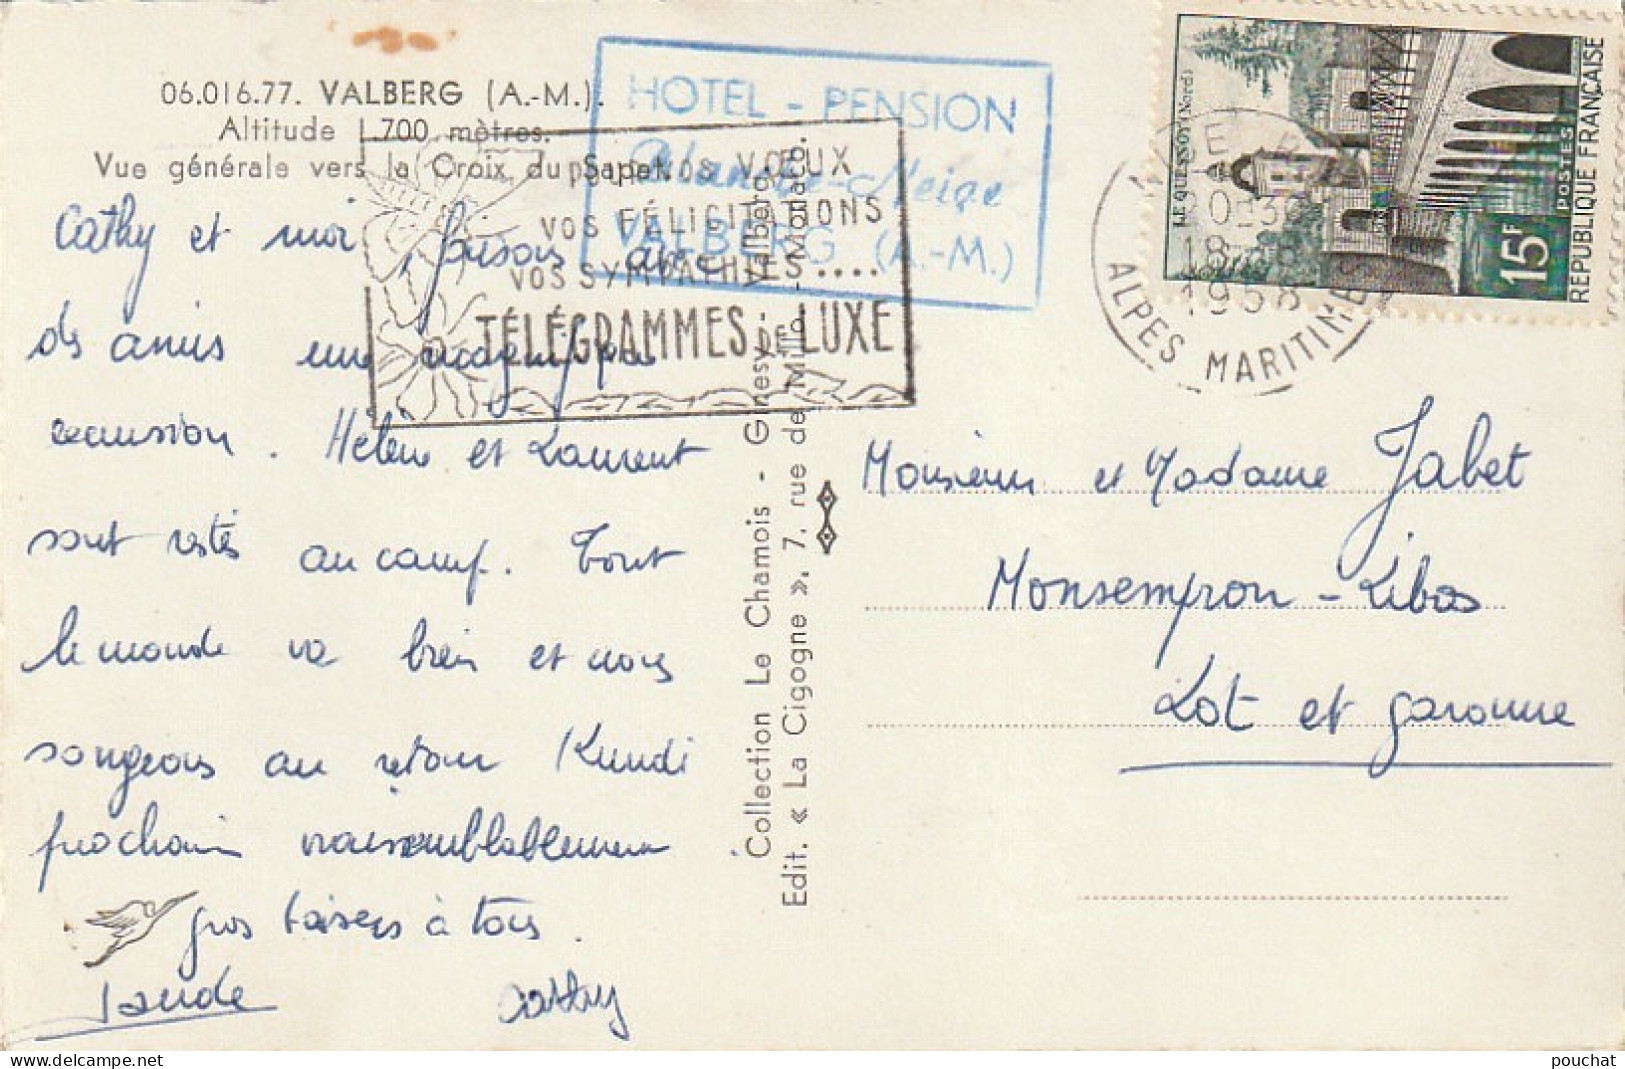 06.016.77. VALBERG (A.-M.).
Altitude 1.700 mètres.
Vue générale vers la Croix du Sapet
Cathy et moi faisons avec
des amis une magnifique
excursion. Hélène et Laurent
sont restés au camp. Tout
le monde va bien et nous
songeons au retour
prochain vraisemblablement
gros baisers à tous.
Cathy
HOTEL - PENSION
Blanche-Neige
VALBERG (A.-M.)
POUR VOS VŒUX
VOS FÉLICITATIONS
VOS SYMPATHIES....
TÉLÉGRAMMES DE LUXE
Collection Le Chamois - Ginesy - Valberg
Edit. « La Cigogne ». 7, rue de Millo - Monaco.
18-8
1958
ALPES MARITIMES
LE QUESNOY (Nord)
15F
POSTES
REPUBLIQUE FRANÇAISE
Monsieur et Madame Jabet
Monsempron-Libos
Lot et Garonne
pouchat